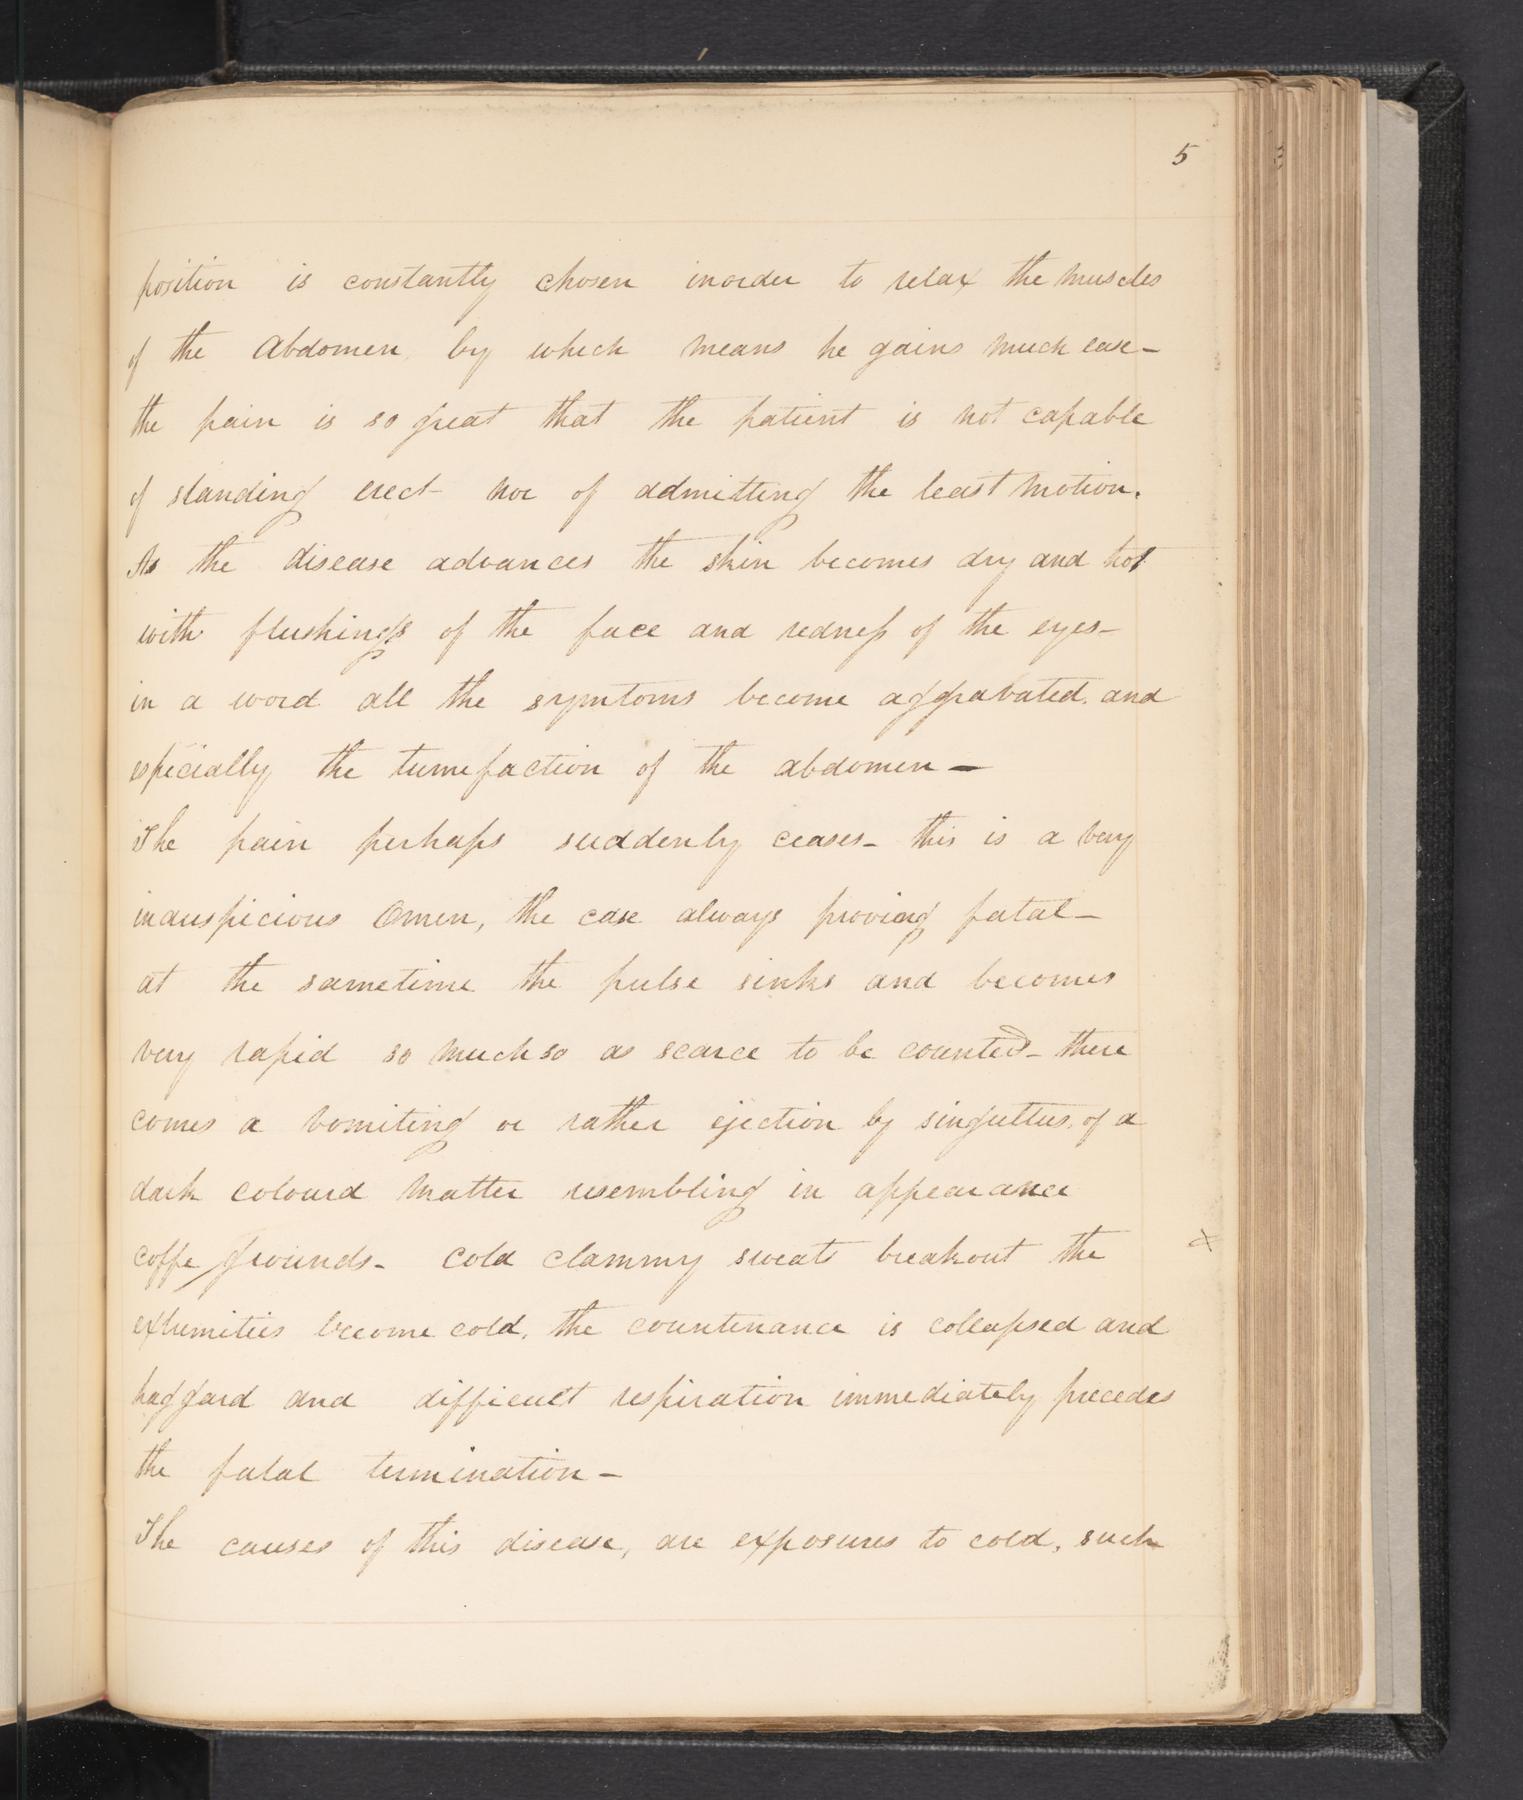 5
position is constantly chosen inorder to relax the muscles
of the Abdomen by which means he gains much ease—
the pain is so great that the patient is not capable
of standing erect— nor of admitting the least motion.
As the disease advances the skin becomes dry and hot
with flushings of the face and redneſs of the eyes—
in a word all the symtoms become aggravated. and
especially the tumefaction of the abdomen—
The pain perhaps suddenly ceases— this is a very
inauspicious Omen, the case always proving fatal—
at the sametime the pulse sinks and becomes
very rapid so much so as scarce to be counted— there
comes a vomiting or rather ejection by singuttus, of a
dark colourd matter resembling in appearance
coffe grounds— cold clammy sweats breakout the
x
extremities become cold, the countenance is collapsed and
haggard and difficult respiration immediately precedes
the fatal termination—
The causes of this disease, are exposures to cold, such